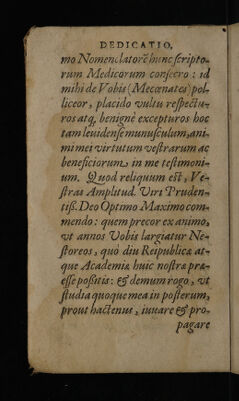 DEDICATIO.
mo Nomenclatorē hunc scripto-
rum Medicorum consecro: id
mihi de Vobis (Mecœnates) pol-
liceor, placido vultu respectu-
ros atq, benignè excepturos hoc
tam leuidense munusculum, ani-
mi mei virtutum vestrarum ac
beneficiorum, in me testimoni-
um. Quod reliquum est, Ve-
stras Amplitud. Viri Pruden-
tiß. Deo Optimo Maximo com-
mendo: quem precor ex animo,
vt annos Vobis largiatur Ne-
storeos, quò diu Reipublicæ at-
que Academiæ huic nostræ præ-
esse poßitis: & demum rogo, vt
studia quoque mea in posterum,
prout hactenus, iuuare & pro-
pagare